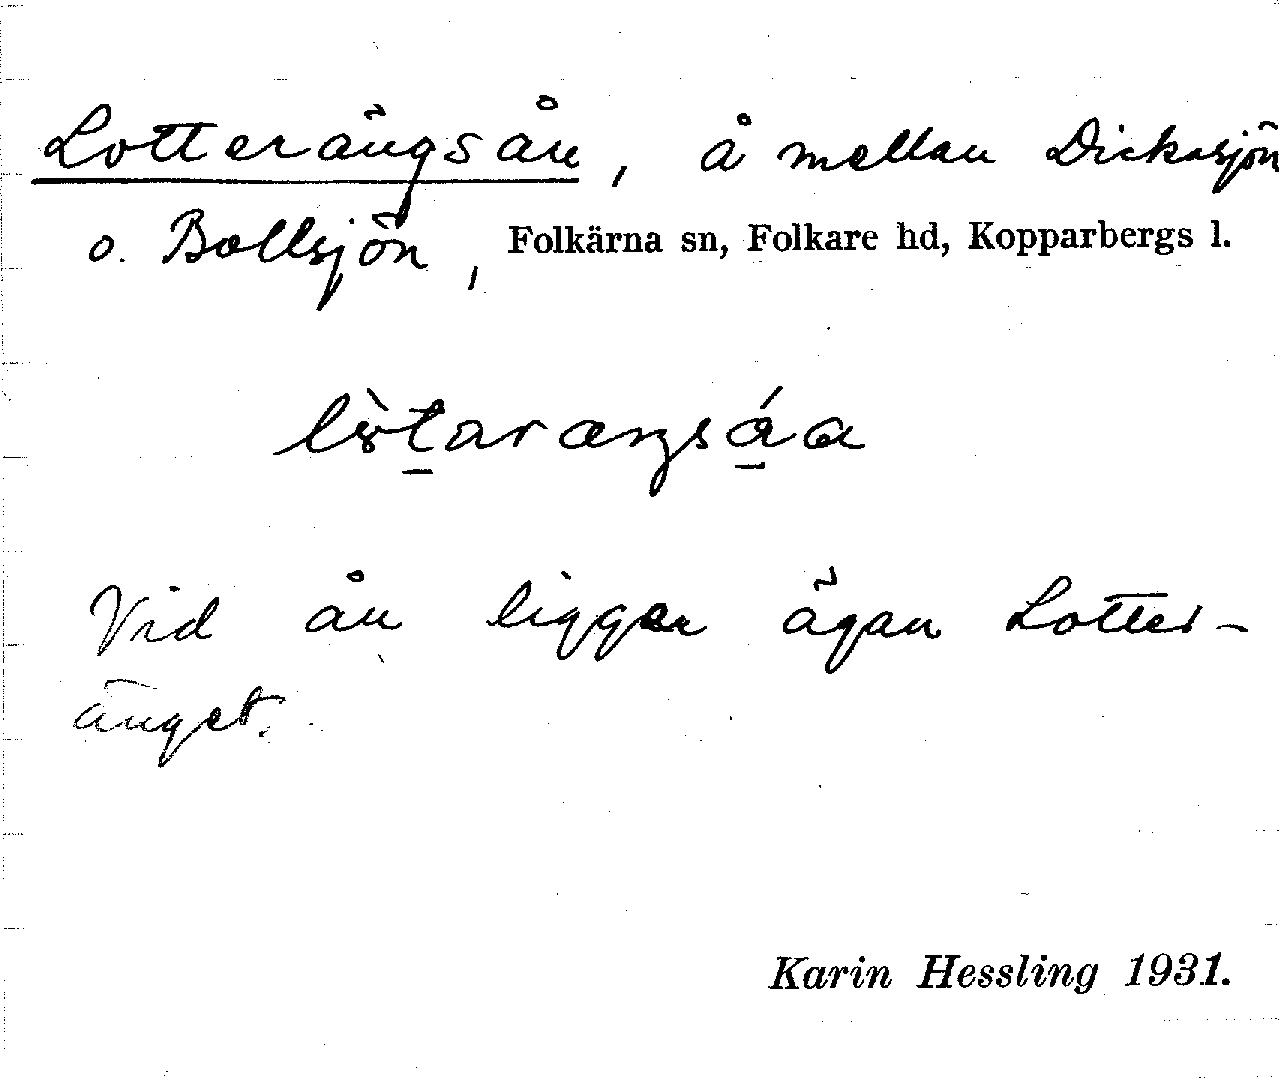 Lotterängsån, å mellan Dicksjön
o. Bollsjön, Folkärna sn, Folkare hd, Kopparbergs l.
Vid ån ligger ägan Lotter-
änget.
Karin Hessling 1931.